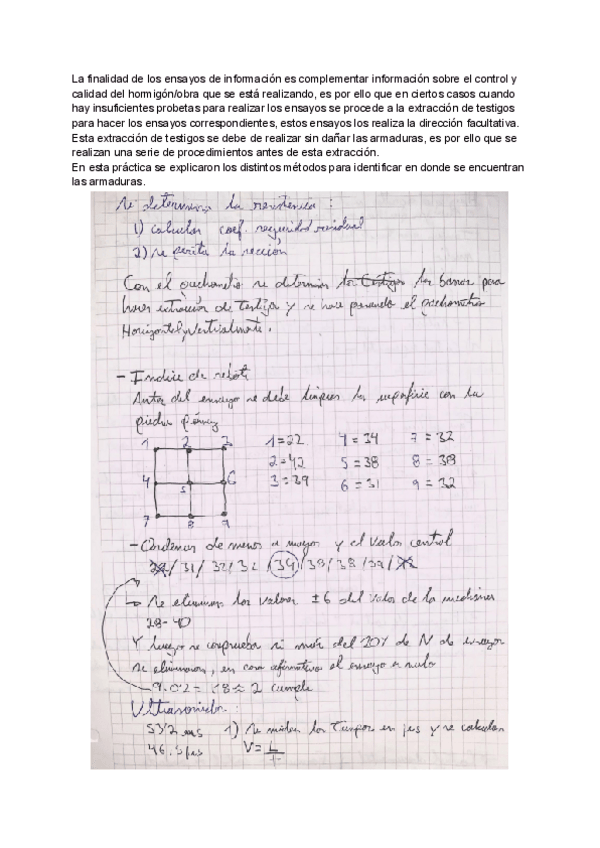 La finalidad de los ensayos de información es complementar información sobre el control y
calidad del hormigón/obra que se está realizando, es por ello que en ciertos casos cuando
hay insuficientes probetas para realizar los ensayos se procede a la extracción de testigos
para hacer los ensayos correspondientes, estos ensayos los realiza la dirección facultativa.
Esta extracción de testigos se debe de realizar sin dañar las armaduras, es por ello que se
realizan una serie de procedimientos antes de esta extracción.
En esta práctica se explicaron los distintos métodos para identificar en donde se encuentran
las armaduras.
Se determina la resistencia :
1) calcular coef. seguridad residual
2) se perita la sección
Con el pachometro se determinan los testigos las barras para
hacer extracción de testigo y se hace pasando el pachometro
Horizontal y Verticalmente.
- Indice de rebote
Antes del ensayo se debe limpiar la superficie con la
piedra pómez
1 2 3 1=22 4=34 7=32
4 5 6 2=42 5=38 8=38
7 8 9 3=39 6=31 9=32
- Ordenar de menor a mayor y el valor central
22/31/32/32/34/38/38/39/42
→ Se eliminan los valores ±6 del valor de la mediana
28-40
Y luego se comprueba si más del 20% de N de ensayos
se eliminaron, en caso afirmativo el ensayo es nulo
9·0.2= 1.8≈2 cumple
Ultrasonidos:
53'2 ms 1) Se miden los tiempos en μs y se calculan
46.5 μs V= L/t